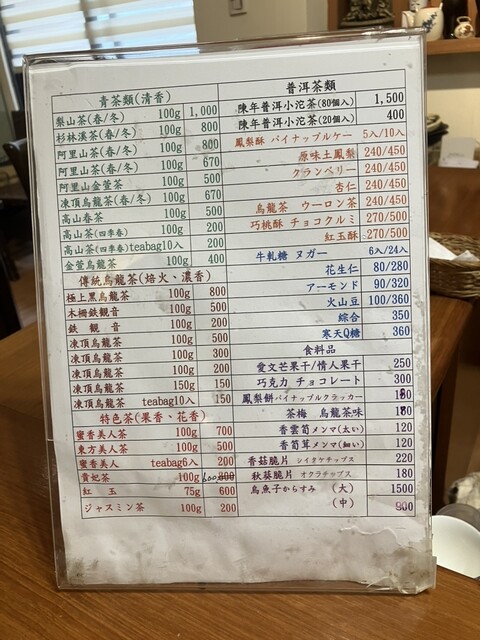 青茶類(清香)
梨山茶(春/冬) 100g 1,000
杉林溪茶(春/冬) 100g 800
阿里山茶(春/冬) 100g 800
阿里山茶(春/冬) 100g 670
阿里山金萱茶 100g 500
凍頂烏龍茶(春/冬) 100g 670
高山春茶 100g 500
高山茶(四季春) 100g 200
高山茶(四季春)teabag10入 200
金萱烏龍茶 100g 400
傳統烏龍茶(焙火、濃香)
極上黑烏龍茶 100g 800
木柵鉄観音 100g 500
鉄 観 音 100g 200
凍頂烏龍茶 100g 500
凍頂烏龍茶 100g 300
凍頂烏龍茶 100g 200
凍頂烏龍茶 150g 150
凍頂烏龍茶 teabag10入 150
特色茶(果香、花香)
蜜香美人茶 100g 700
東方美人茶 100g 500
蜜香美人 teabag6入 200
貴妃茶 100g 600
紅 玉 75g 600
ジャスミン茶 100g 200
普洱茶類
陳年普洱小沱茶(80個入) 1,500
陳年普洱小沱茶(20個入) 400
鳳梨酥 パイナップルケー 5入/10入
原味土鳳梨 240/450
クランベリー 240/450
杏仁 240/450
烏龍茶 ウーロン茶 240/450
巧桃酥 チョコクルミ 270/500
紅玉酥 270/500
牛軋糖 ヌガー 6入/24入
花生仁 80/280
アーモンド 90/320
火山豆 100/360
綜合 350
寒天Q糖 360
食料品
愛文芒果干/情人果干 250
巧克力 チョコレート 300
鳳梨餅パイナップルクラッカー 180
茶梅 烏龍茶味 180
香雲筍メンマ(太い) 120
香筍茸メンマ(細い) 120
香菇脆片 シイタケチップス 220
秋葵脆片 オクラチップス 180
烏魚子からすみ (大) 1500
(中)